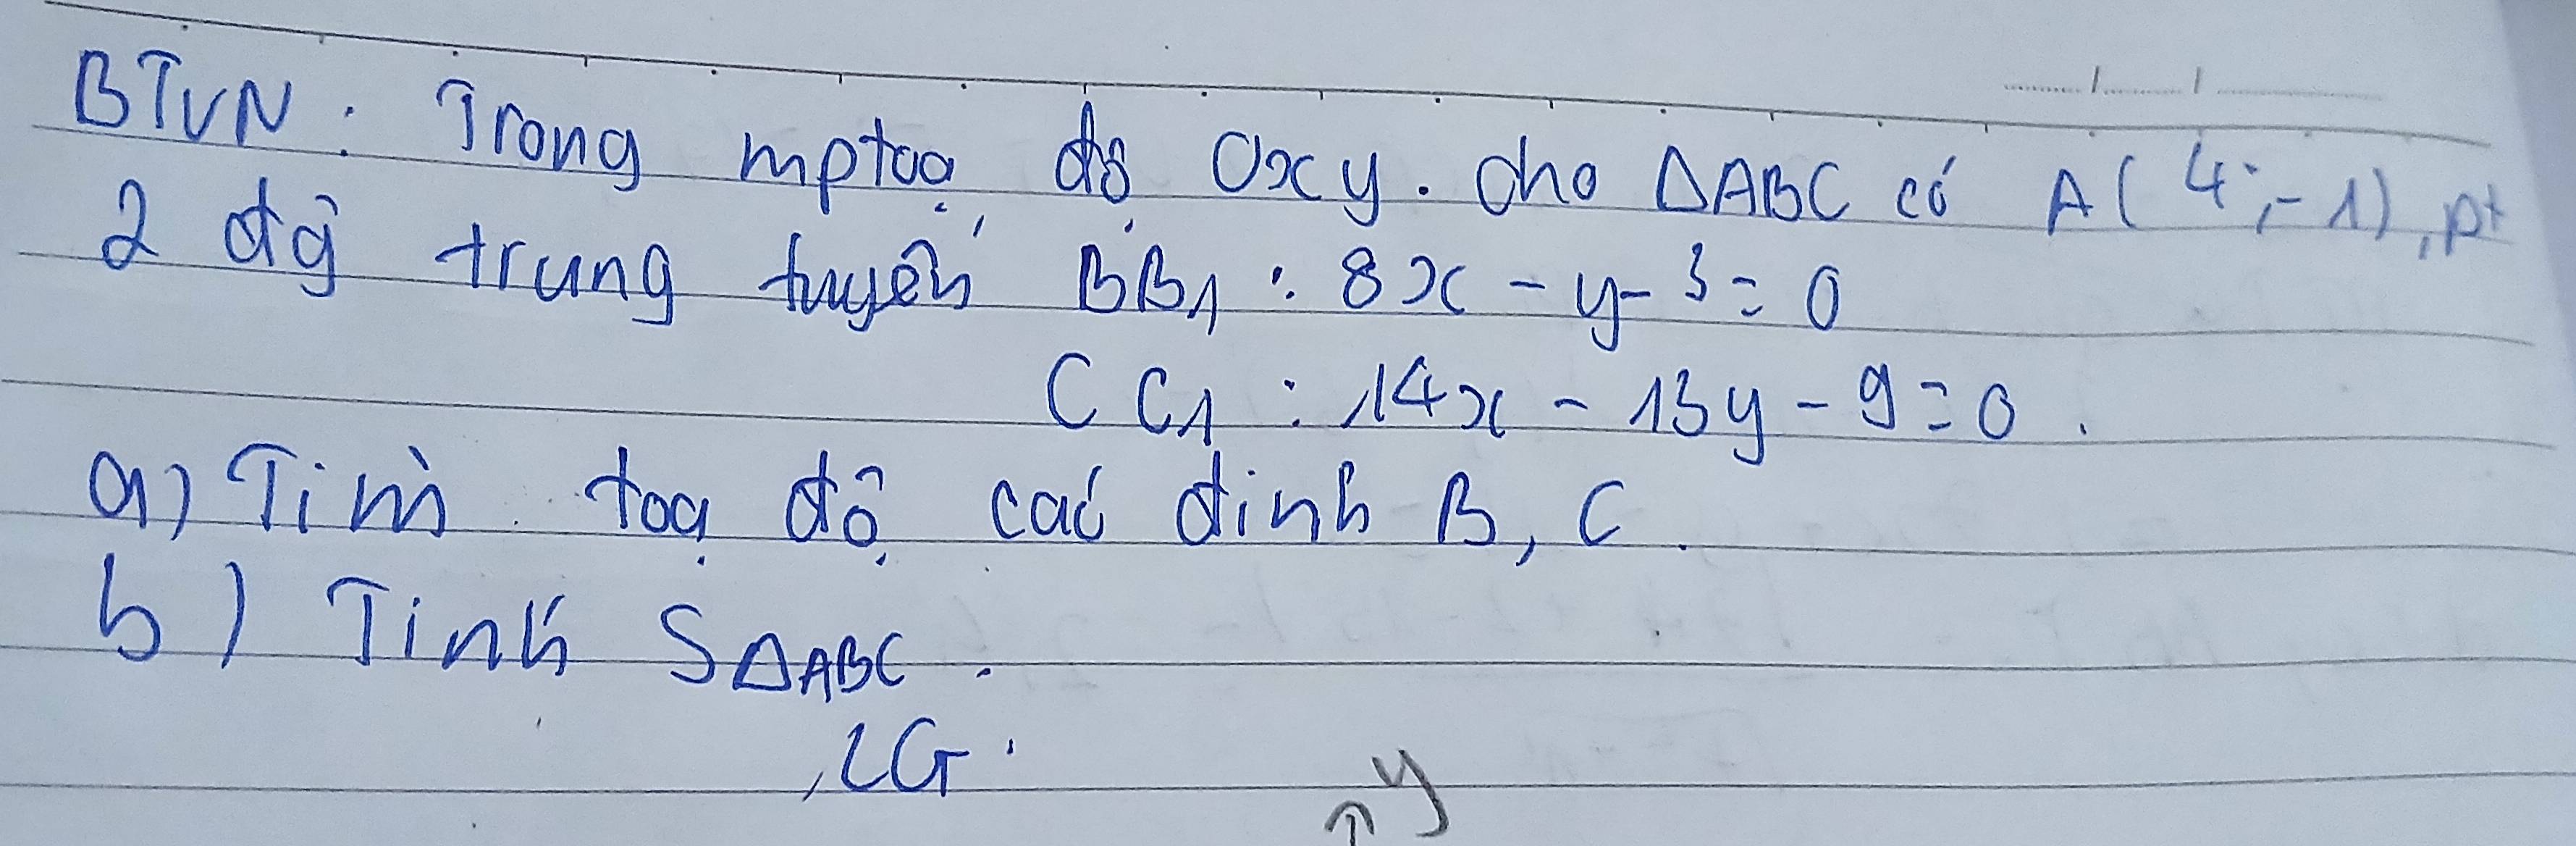 BTVN : Trong mp toạ độ Oxy. cho ΔABC có A( 4 ; -1), pt
2 đg trung tuyến BB1 : 8x - y - 3 = 0
CC1 : 14x - 13y - 9 = 0 .
a) Tìm toạ độ các đỉnh B, C .
b) Tính SΔABC .
LG .
y